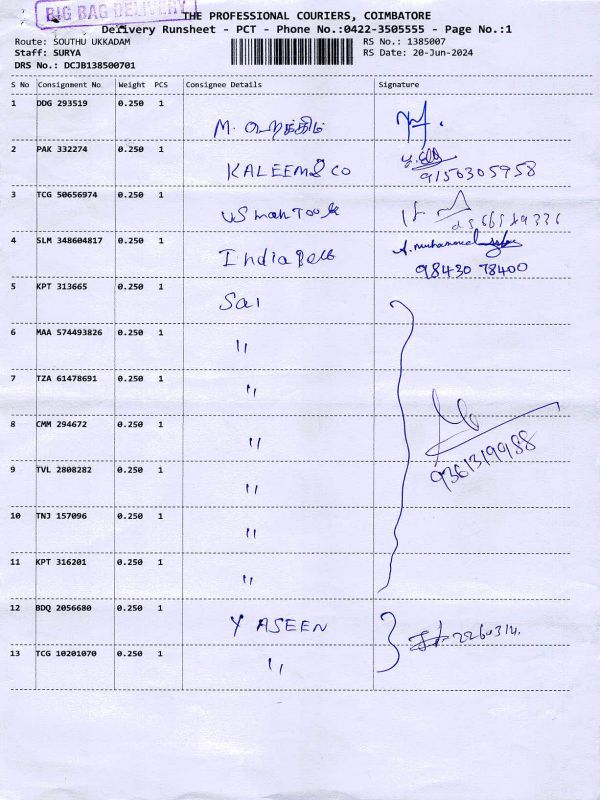 BIG BAG DELIVERY
THE PROFESSIONAL COURIERS, COIMBATORE
Delivery Runsheet - PCT - Phone No.:0422-3505555 - Page No.:1
Route: SOUTHU UKKADAM RS No.: 1385007
Staff: SURYA RS Date: 20-Jun-2024
DRS No.: DCJB138500701
S No Consignment No Weight PCS Consignee Details Signature
1 DDG 293519 0.250 1
M.
2 PAK 332274 0.250 1
KALEEM & CO 9150305958
3 TCG 50656974 0.250 1
4 SLM 348604817 0.250 1
India 98430 78400
5 KPT 313665 0.250 1
Sai
6 MAA 574493826 0.250 1
"
7 TZA 61478691 0.250 1
"
8 CMM 294672 0.250 1
" 9361319988
9 TVL 2808282 0.250 1
"
10 TNJ 157096 0.250 1
"
11 KPT 316201 0.250 1
"
12 BDQ 2056680 0.250 1
YASEEN 2260314.
13 TCG 10201070 0.250 1
"